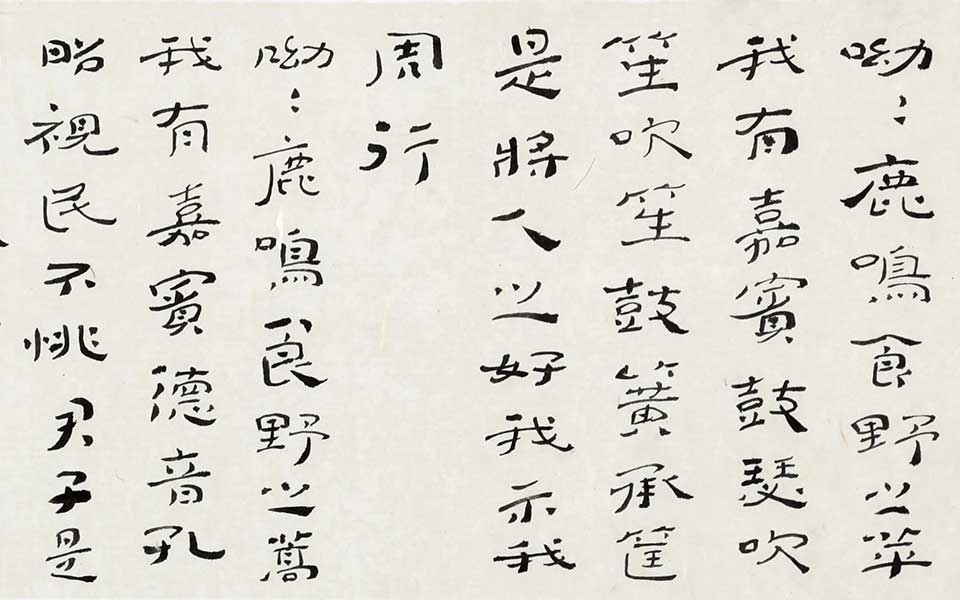 呦〻鹿鳴食野之苹
我有嘉賓鼓瑟吹
笙吹笙鼓簧承筐
是將人之好我示我
周行
呦〻鹿鳴食野之蒿
我有嘉賓德音孔
昭視民不恌君子是